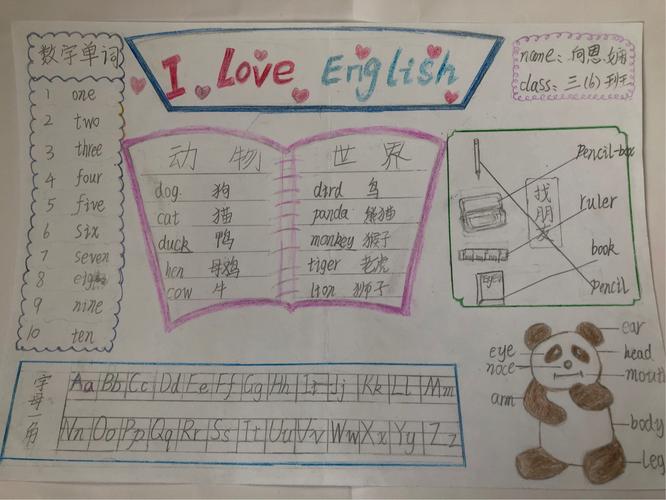 I Love English
name: 向思娟
class: 三(6)班
数字单词
1 one
2 two
3 three
4 four
5 five
6 six
7 seven
8
9 nine
10 ten
动物 世界
dog 狗
cat 猫
duck 鸭
hen 母鸡
cow 牛
dird 鸟
panda 熊猫
monkey 猴子
tiger 老虎
lion 狮子
找朋友
Pencil-box
ruler
book
Pencil
字母一角
Aa Bb Cc Dd Ee Ff Gg Hh Ii Jj Kk Ll Mm
Nn Oo Pp Qq Rr Ss Tt Uu Vv Ww Xx Yy Zz
ear
eye
head
noce
mouth
arm
body
Leg